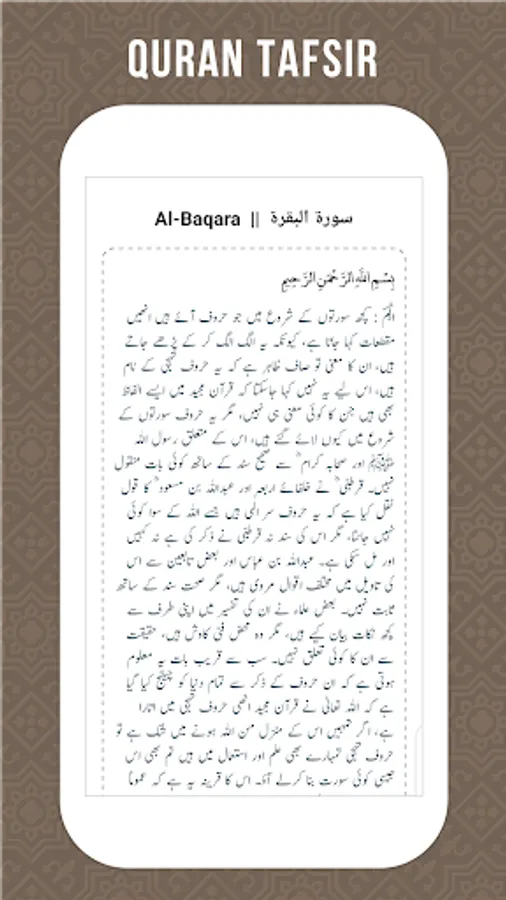 QURAN TAFSIR
Al-Baqara || سورة البقرة
بِسْمِ اللّٰهِ الرَّحْمٰنِ الرَّحِيْمِ
الٓمّٓ : کچھ سورتوں کے شروع میں جو حروف آئے ہیں انھیں
مقطعات کہا جاتا ہے، کیونکہ یہ الگ الگ کر کے پڑھے جاتے
ہیں، ان کا معنی تو صاف ظاہر ہے کہ یہ حروف تہجی کے نام
ہیں، اس لیے یہ نہیں کہا جاسکتا کہ قرآن مجید میں ایسے الفاظ
بھی ہیں جن کا کوئی معنی ہی نہیں، مگر یہ حروف سورتوں کے
شروع میں کیوں لائے گئے ہیں، اس کے متعلق رسول اللہ
ﷺ اور صحابہ کرام ؓ سے صحیح سند کے ساتھ کوئی بات منقول
نہیں۔ قرطبی ؓ نے خلفائے اربعہ اور عبداللہ بن مسعود ؓ کا قول
نقل کیا ہے کہ یہ حروف سر الٰہی ہیں جسے اللہ کے سوا کوئی
نہیں جانتا، مگر اس کی سند نہ قرطبی نے ذکر کی ہے نہ کہیں
اور مل سکی ہے۔ عبداللہ بن عباس اور بعض تابعین سے اس
کی تاویل میں مختلف اقوال مروی ہیں، مگر صحت سند کے ساتھ
ثابت نہیں۔ بعض علماء نے ان کی تفسیر میں اپنی طرف سے
کچھ نکات بیان کیے ہیں، مگر وہ محض فنی کاوش ہیں، حقیقت
سے ان کا کوئی تعلق نہیں۔ سب سے قریب بات یہ معلوم
ہوتی ہے کہ ان حروف کے ذکر سے تمام دنیا کو چیلنج کیا گیا
ہے کہ اللہ تعالیٰ نے قرآن مجید انھی حروف تہجی میں اتارا
ہے، اگر تمہیں اس کے منزل من اللہ ہونے میں شک ہے تو
حروف تہجی تمہارے بھی علم اور استعمال میں ہیں تم بھی اس
جیسی کوئی سورت بنا کرلے آؤ۔ اس کا قرینہ یہ ہے کہ عموماً